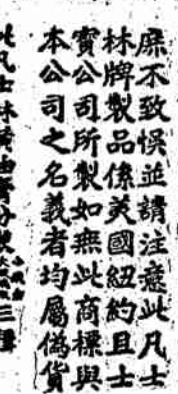 庶不致悞並請注意此凡士
林牌製品係美國紐約且士
寶公司所製如無此商標與
本公司之名義者均屬偽貨
此凡士林黃油膏分裝三種